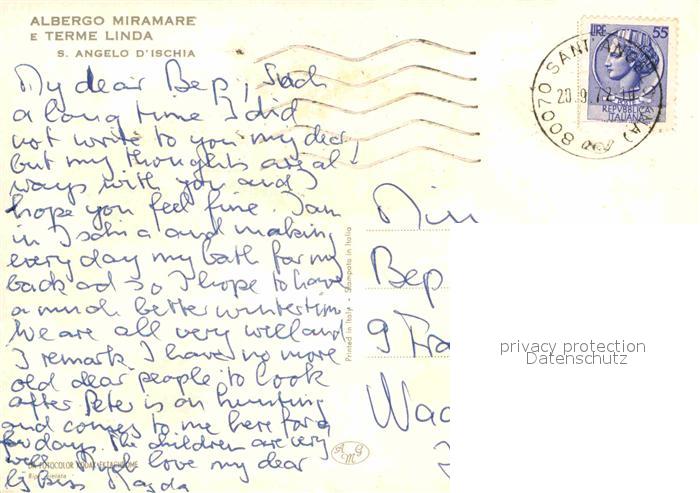 ALBERGO MIRAMARE
E TERME LINDA
S. ANGELO D'ISCHIA
LIRE 55
REPUBBLICA
ITALIANA
80070 SANT'ANGELO
20.9.72
My dear Bep, Such
a long time I did
not write to you my dear,
but my thoughts are al
ways with you and I
hope you feel fine. I am
in Ischia and making
every day my bath for my
back ad so I hope to have
a much better wintertime
We are all very well and
I remark I have no more
old dear people to look
after Peter is on hunting
and comes to me here for a
few days. The children are very
well. Much love my dear
Magda
Bep
9 Fra
Printed in Italy - Stampata in Italia
DA FOTOCOLOR KODAK EKTACHROME
privacy protection
Datenschutz